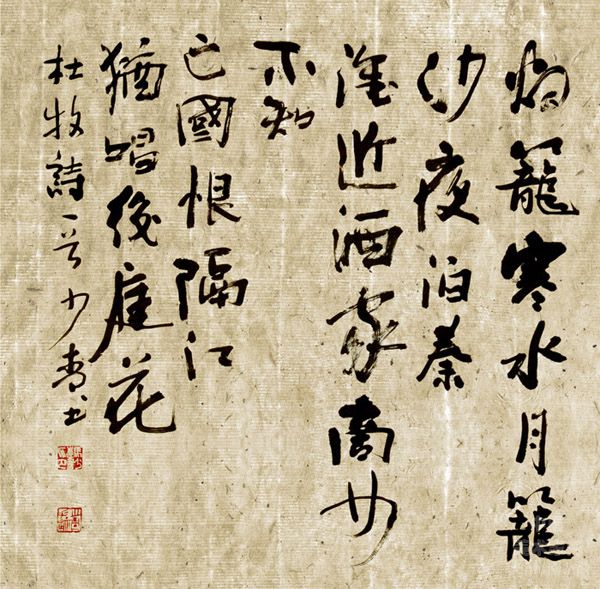 烟籠寒水月籠
沙夜泊秦
淮近酒家商女
不知
亡國恨隔江
猶唱後庭花
杜牧詩一首少青书